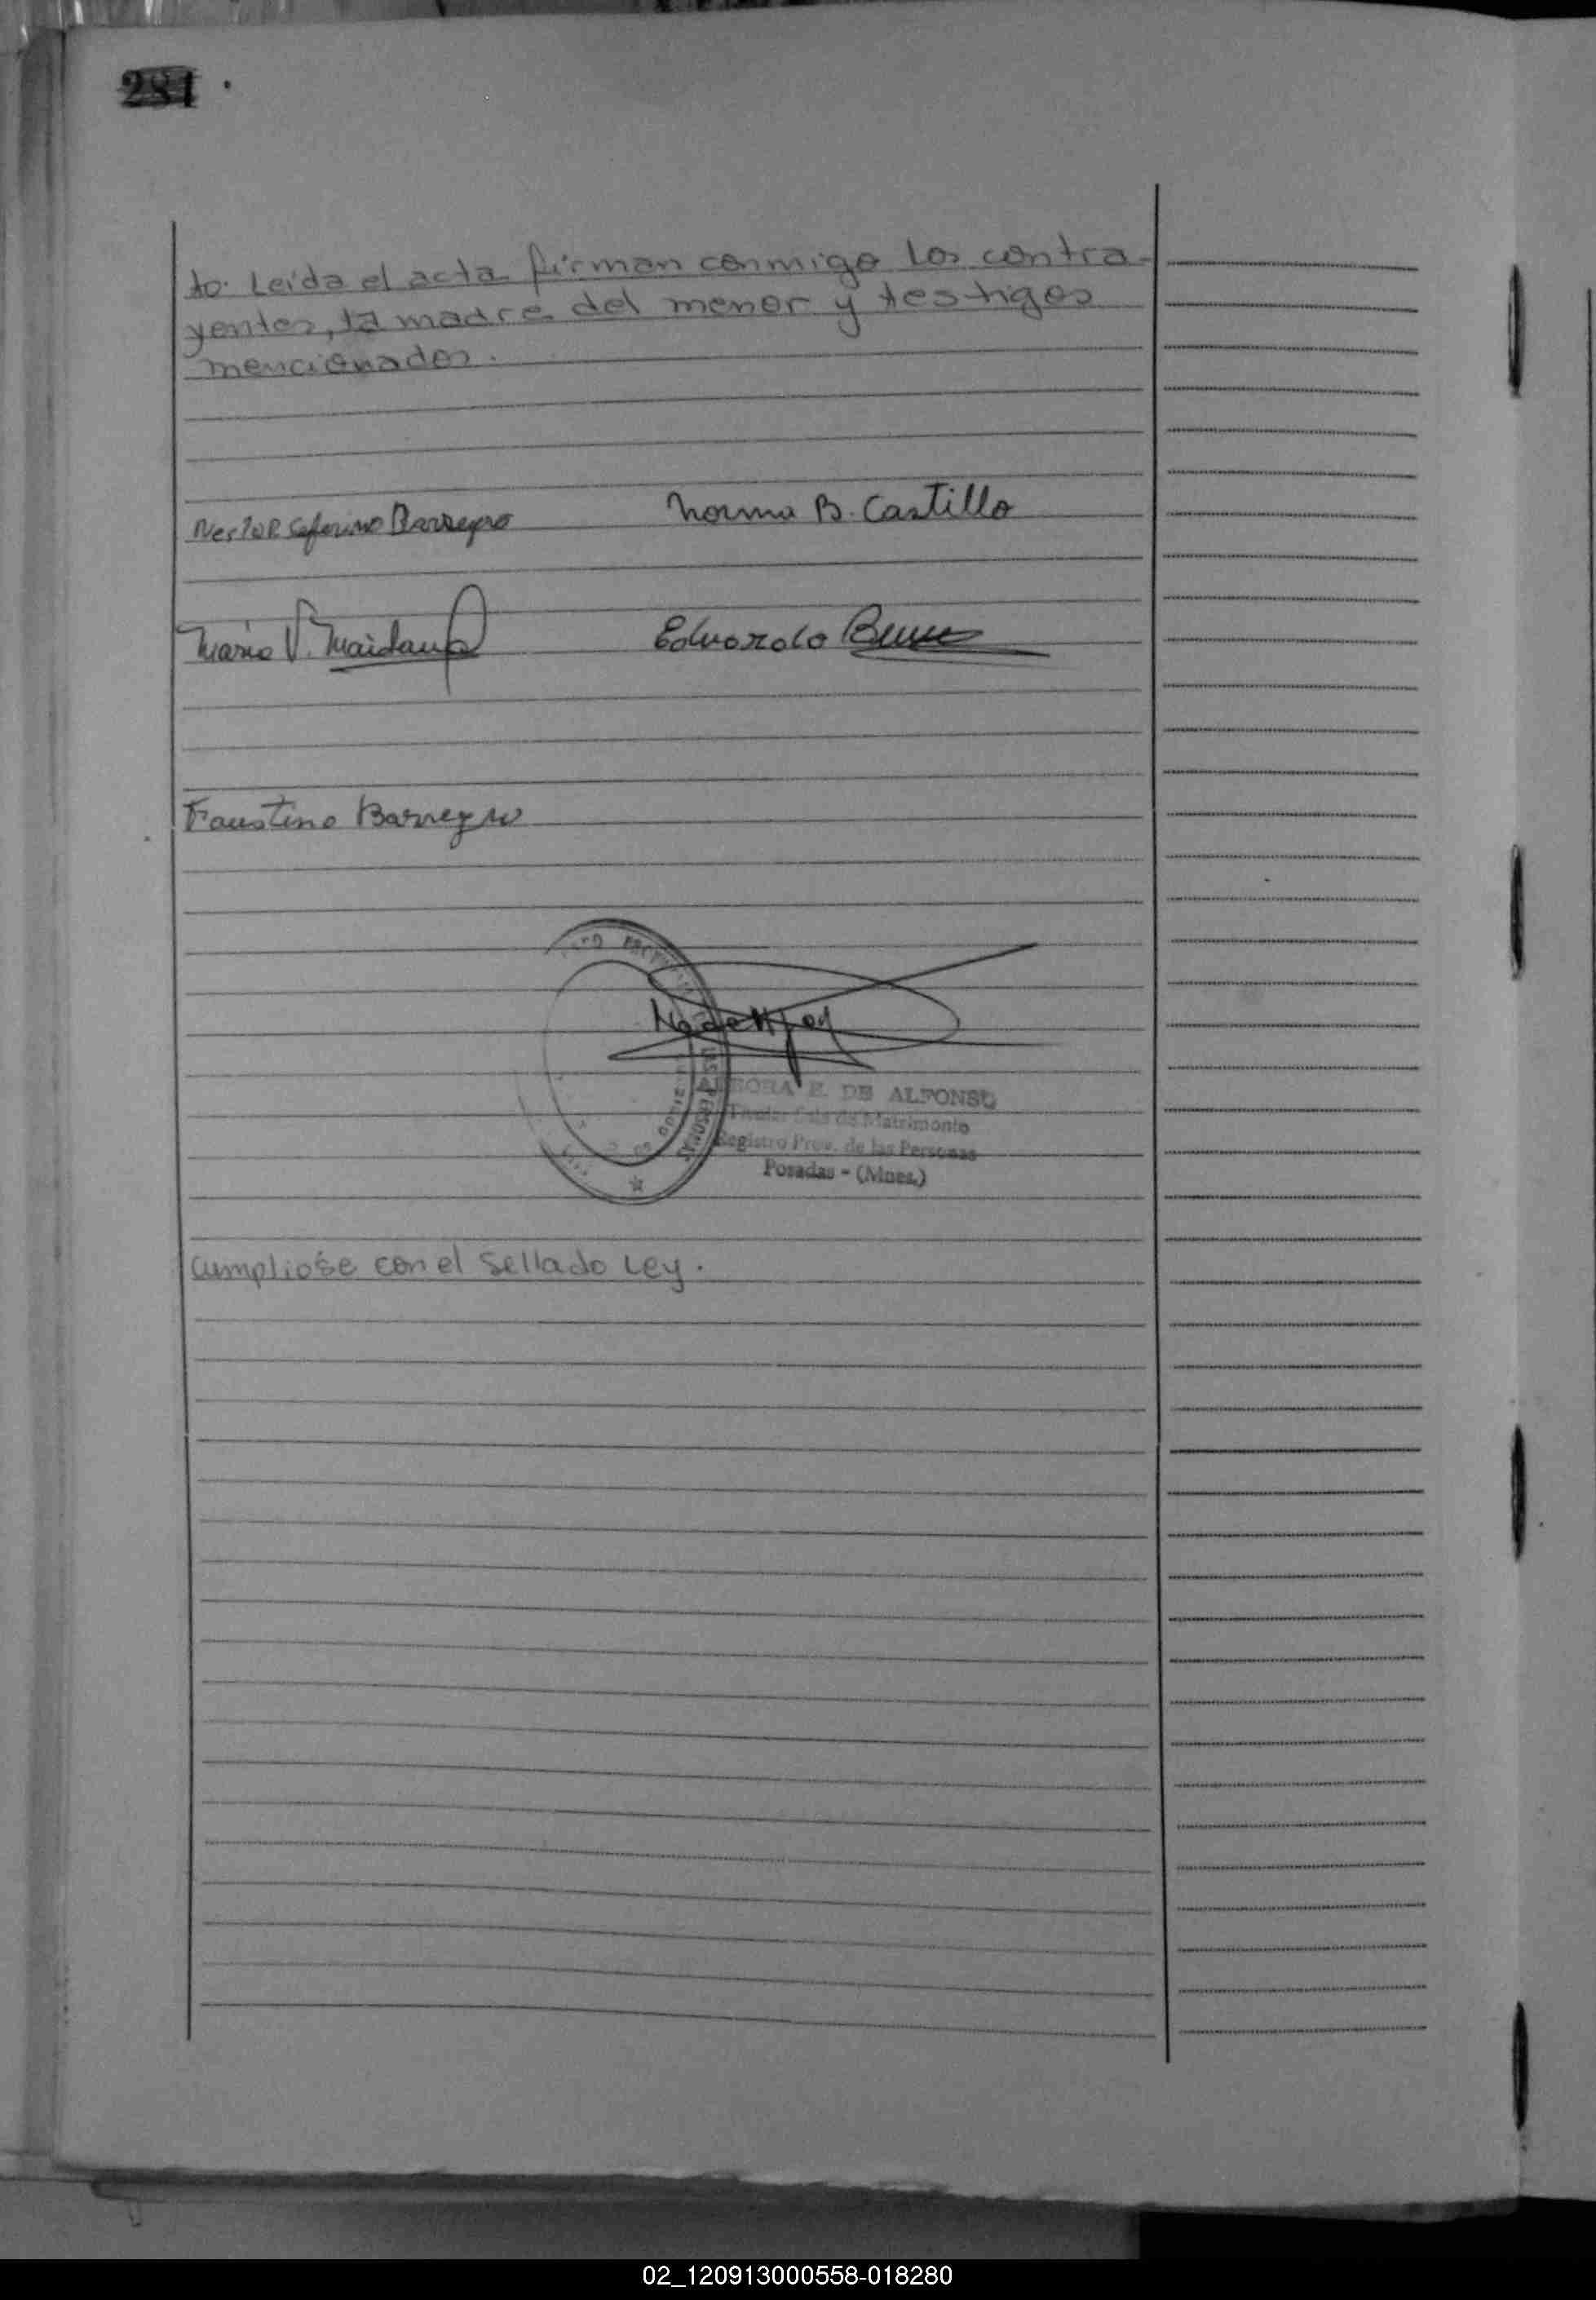 281
to. Leída el acta firman conmigo los contra-
yentes, la madre del menor y testigos
mencionados.
Nestor Ceferino Barreyro
Norma B. Castillo
Mario V. Maidana
Eduardo
Faustino Barreyro
E. DE ALFONSO
Titular Sala de Matrimonio
Registro Prov. de las Personas
Posadas - (Mnes.)
Cumplióse con el Sellado Ley.
02_120913000558-018280